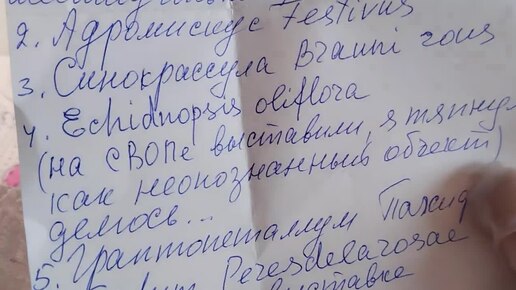 2. Адромискус Festivus
3. Синокрассула Brauni rous
4. Echidnopsis oliflora
(на СВОПе выставили, я тяпнул
как неопознанный объект)
делось...
5. Граптопеталум Пахид
Peresdelarosae
выставке